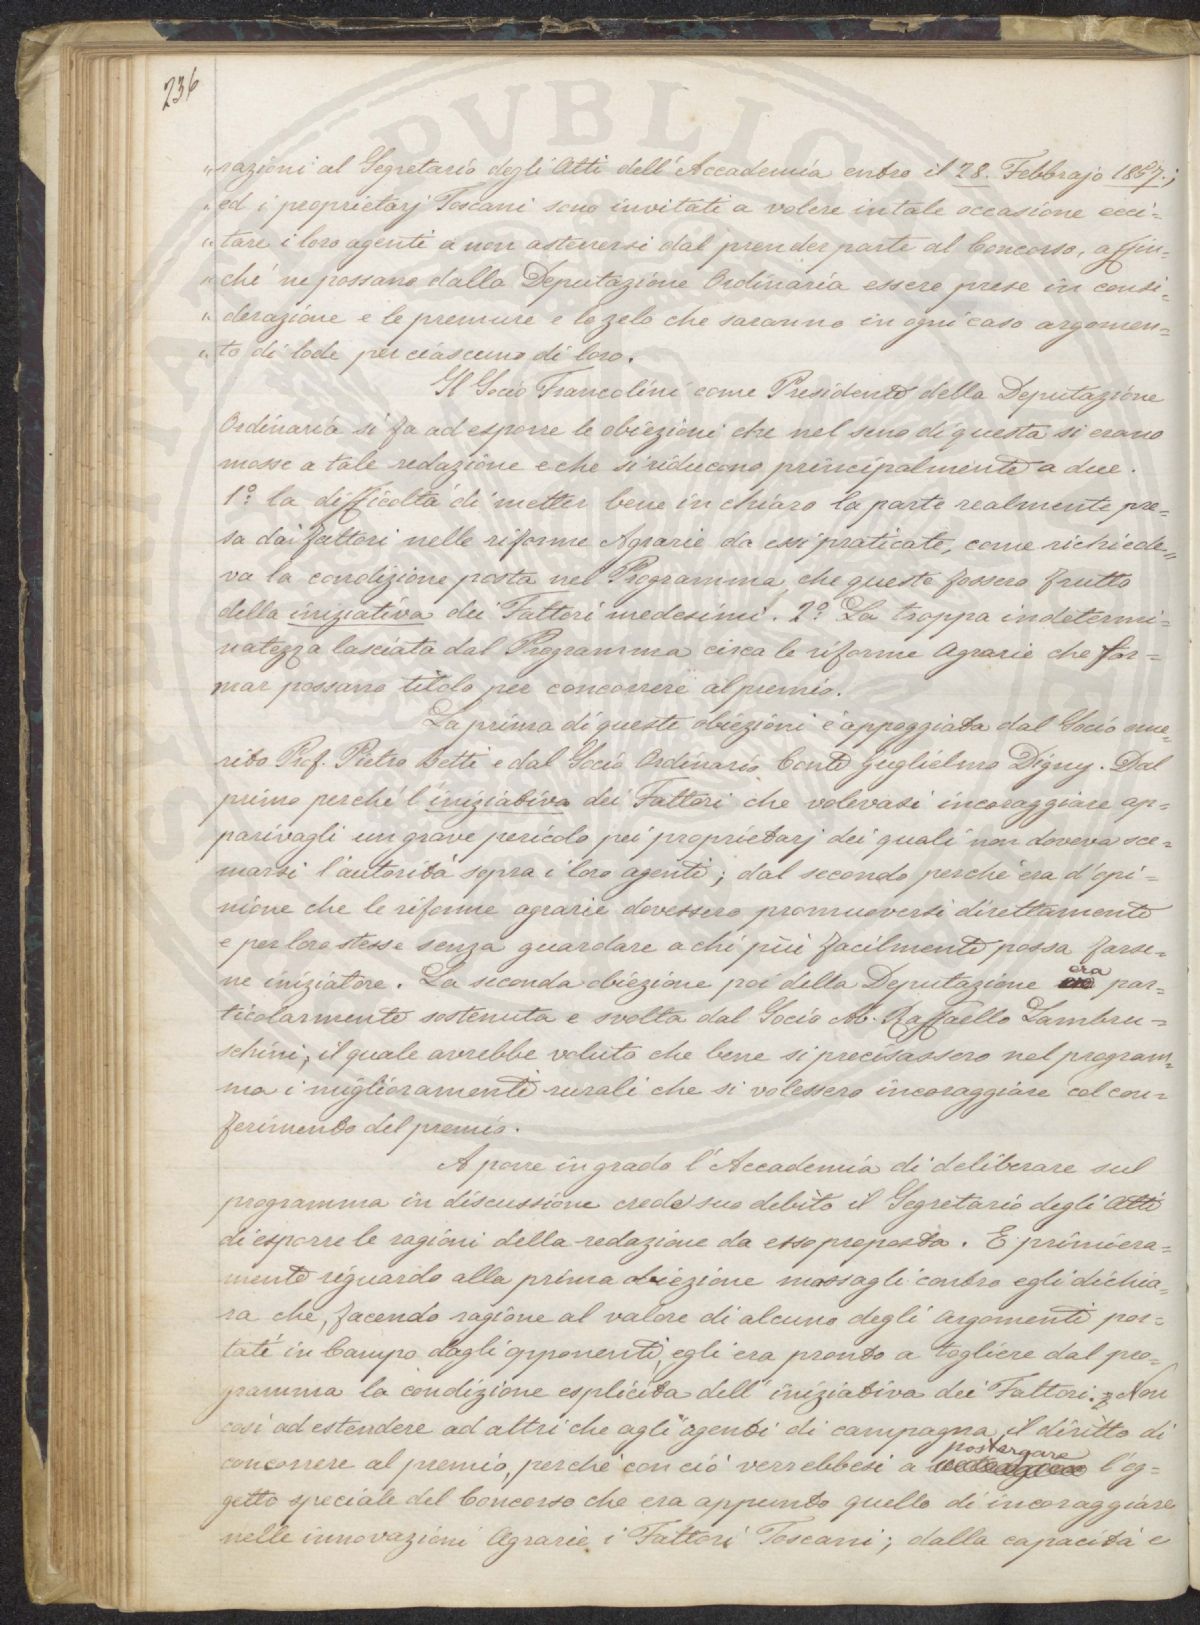 236
"razioni al Segretario degli Atti dell'Accademia entro il 28. Febbrajo 1857.;
" ed i proprietarj Toscani sono invitati a volere in tale occasione ecci=
" tare i loro agenti a non astenersi dal prender parte al Concorso, affin=
" ché ne possano dalla Deputazione Ordinaria essere prese in consi=
" derazione e le premure e lo zelo che saranno in ogni caso argomen=
" to di lode per ciascuno di loro.
Il Socio Francolini come Presidente della Deputazione
Ordinaria si fa ad esporre le obiezioni che nel seno di questa si erano
mosse a tale redazione e che si riducono principalmente a due.
1.o la difficoltà di metter bene in chiaro la parte realmente pre=
sa dai fattori nelle riforme Agrarie da essi praticate, come richiede=
va la condizione posta nel Programma che queste fossero frutto
della iniziativa dei Fattori medesimi. 2.o La troppa indetermi=
natezza lasciata dal Programma circa le riforme Agrarie che for=
mar possano titolo per concorrere al premio.
La prima di queste obiezioni è appoggiata dal Socio eme=
rito Prof. Pietro Betti e dal Socio Ordinario Conte Guglielmo Digny. Dal
primo perché l'iniziativa dei Fattori che volevasi incoraggiare ap=
parivagli un grave pericolo pei proprietarj dei quali non doveva sce=
marsi l'autorità sopra i loro agenti; dal secondo perché era d'opi=
nione che le riforme agrarie dovessero promuoversi direttamente
e per loro stesse senza guardare a chi più facilmente possa farse=
ne iniziatore. La seconda obiezione poi della Deputazione era par=
ticolarmente sostenuta e svolta dal Socio Ab. Raffaello Lambru=
schini, il quale avrebbe voluto che bene si precisassero nel program=
ma i miglioramenti rurali che si volessero incoraggiare col con=
ferimento del premio.
A porre in grado l'Accademia di deliberare sul
programma in discussione crede suo debito il Segretario degli Atti
di esporre le ragioni della redazione da esso proposta. E primiera=
mente riguardo alla prima obiezione mossagli contro egli dichia=
ra che, facendo ragione al valore di alcuno degli argomenti por=
tati in Campo dagli opponenti, egli era pronto a togliere dal pro=
gramma la condizione esplicita dell'iniziativa dei Fattori. Non
così ad estendere ad altri che agli agenti di campagna, il diritto di
concorrere al premio, perché con ciò verrebbesi a postergare l'og=
getto speciale del Concorso che era appunto quello di incoraggiare
nelle innovazioni Agrarie i Fattori Toscani; dalla capacità e